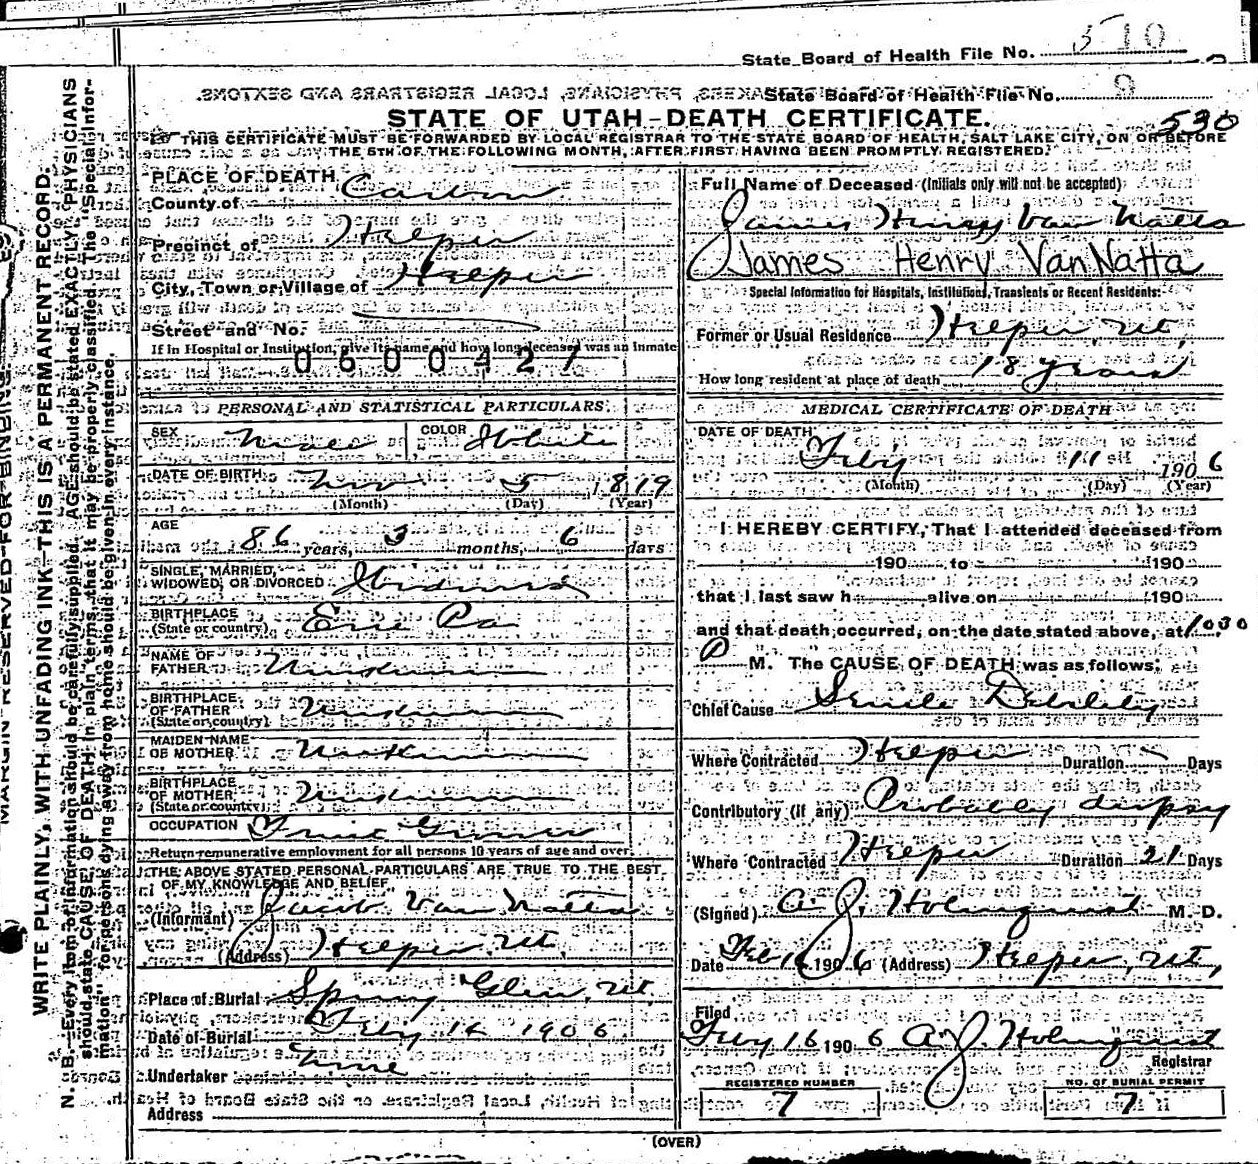 510
State Board of Health File No.
State Board of Health File No.
STATE OF UTAH-DEATH CERTIFICATE.
530
THIS CERTIFICATE MUST BE FORWARDED BY LOCAL REGISTRAR TO THE STATE BOARD OF HEALTH, SALT LAKE CITY, ON OR BEFORE
THE 5TH OF THE FOLLOWING MONTH, AFTER FIRST HAVING BEEN PROMPTLY REGISTERED.
MARGIN RESERVED FOR BINDING
WRITE PLAINLY, WITH UNFADING INK—THIS IS A PERMANENT RECORD.
N. B.—Every item of information should be carefully supplied. AGE should be stated EXACTLY. PHYSICIANS
should state CAUSE OF DEATH in plain terms, that it may be properly classified. The "Special Infor-
mation" for persons dying away from home should be given in every instance.
PLACE OF DEATH
County of Carbon
Precinct of Helper
City, Town or Village of Helper
Street and No.
If in Hospital or Institution, give its name and how long deceased was an inmate
0600427
PERSONAL AND STATISTICAL PARTICULARS
SEX Male COLOR White
DATE OF BIRTH Nov 5 1819
(Month) (Day) (Year)
AGE 86 years, 3 months, 6 days
SINGLE, MARRIED,
WIDOWED, OR DIVORCED Widowed
BIRTHPLACE
(State or country) Erie Pa
NAME OF
FATHER Unknown
BIRTHPLACE
OF FATHER Unknown
(State or country)
MAIDEN NAME
OF MOTHER Unknown
BIRTHPLACE
OF MOTHER Unknown
(State or country)
OCCUPATION Fruit Grower
Return remunerative employment for all persons 10 years of age and over
THE ABOVE STATED PERSONAL PARTICULARS ARE TRUE TO THE BEST
OF MY KNOWLEDGE AND BELIEF
(Informant) Jacob Van Natta
(Address) Helper, Ut.
Place of Burial Spring Glen, Ut.
Date of Burial Feby 14 1906.
Undertaker None
Address
Full Name of Deceased (Initials only will not be accepted)
James Henry Van Natta
James Henry VanNatta
Special Information for Hospitals, Institutions, Transients or Recent Residents:
Former or Usual Residence Helper, Ut,
How long resident at place of death 18 years
MEDICAL CERTIFICATE OF DEATH
DATE OF DEATH
Feby 11 1906
(Month) (Day) (Year)
I HEREBY CERTIFY, That I attended deceased from
190 to 190
that I last saw h alive on 190
and that death occurred, on the date stated above, at 10.30
P M. The CAUSE OF DEATH was as follows:
Chief Cause Senile Debility
Where Contracted Helper Duration Days
Contributory (if any) Probably dropsy
Where Contracted Helper Duration 21 Days
(Signed) A. J. Holmquist M. D.
Date Feb 16 1906 (Address) Helper, Ut,
Filed
Feby 16 1906 A. J. Holmquist
Registrar
REGISTERED NUMBER
7
NO. OF BURIAL PERMIT
7
(OVER)